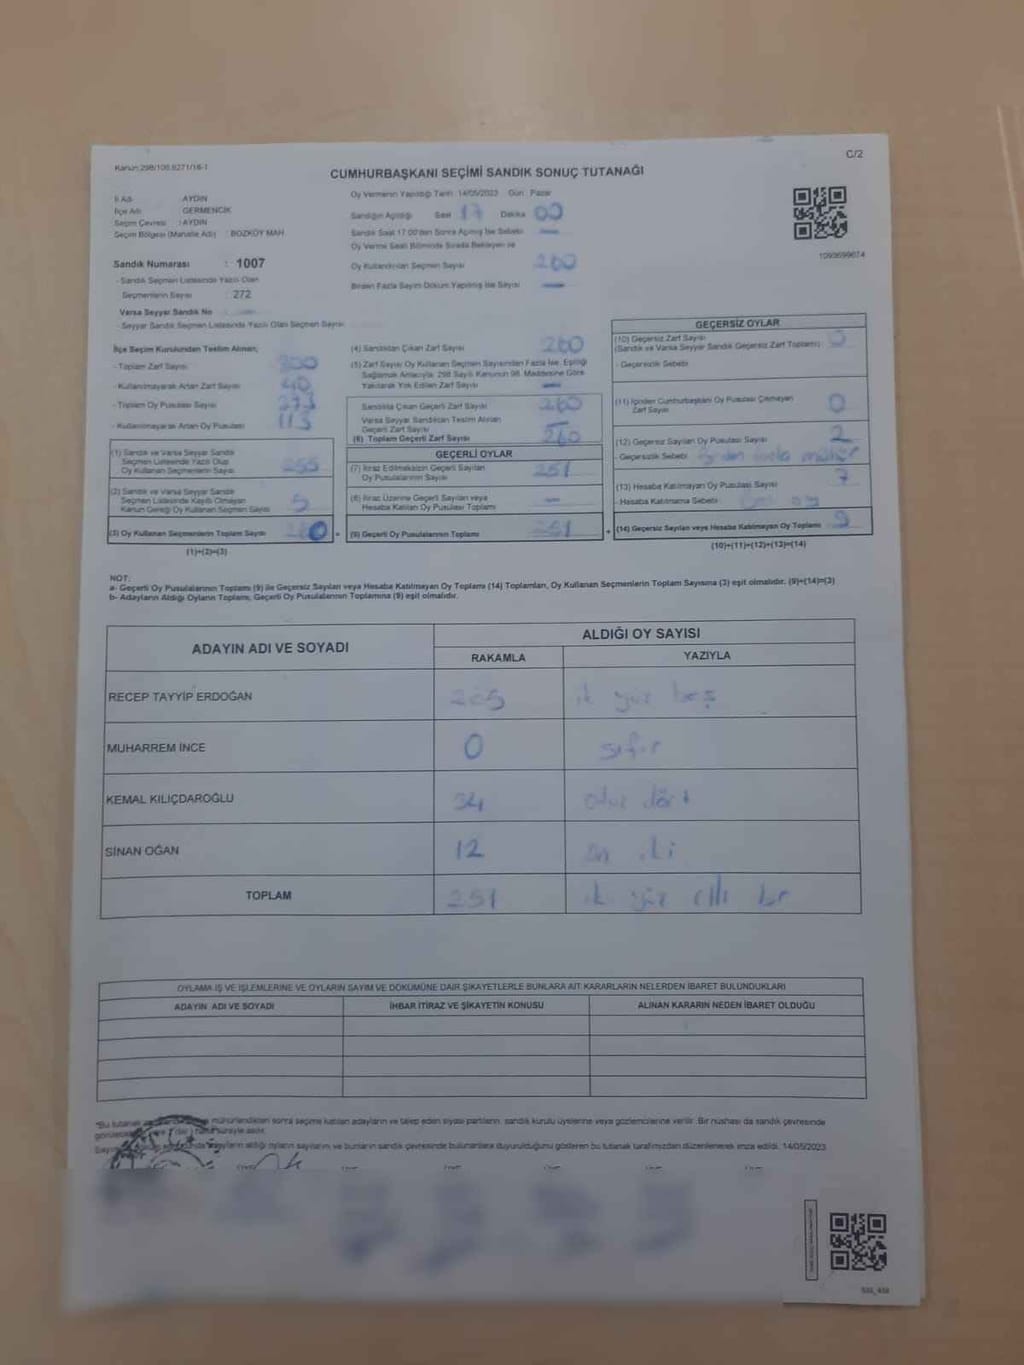 Kanun:298/105,6271/16-1
C/2
CUMHURBAŞKANI SEÇİMİ SANDIK SONUÇ TUTANAĞI
İl Adı : AYDIN
İlçe Adı : GERMENCİK
Seçim Çevresi : AYDIN
Seçim Bölgesi (Mahalle Adı) : BOZKÖY MAH.
Oy Vermenin Yapıldığı Tarih 14/05/2023 Gün : Pazar
Sandığın Açıldığı Saat 17 Dakika 00
Sandık Saat 17:00'den Sonra Açılmış İse Sebebi
Oy Verme Saati Bitiminde Sırada Bekleyen ve
Oy Kullandırılan Seçmen Sayısı 260
Birden Fazla Sayım Döküm Yapılmış İse Sayısı —
Sandık Numarası : 1007
- Sandık Seçmen Listesinde Yazılı Olan
Seçmenlerin Sayısı : 272
Varsa Seyyar Sandık No
- Seyyar Sandık Seçmen Listesinde Yazılı Olan Seçmen Sayısı
İlçe Seçim Kurulundan Teslim Alınan;
- Toplam Zarf Sayısı 300
- Kullanılmayarak Artan Zarf Sayısı 40
- Toplam Oy Pusulası Sayısı
- Kullanılmayarak Artan Oy Pusulası 113
(1) Sandık ve Varsa Seyyar Sandık
Seçmen Listesinde Yazılı Olup
Oy Kullanan Seçmenlerin Sayısı 255
(2) Sandık ve Varsa Seyyar Sandık
Seçmen Listesinde Kayıtlı Olmayan
Kanun Gereği Oy Kullanan Seçmen Sayısı 5
(3) Oy Kullanan Seçmenlerin Toplam Sayısı 260
(1)+(2)=(3)
(4) Sandıktan Çıkan Zarf Sayısı 260
(5) Zarf Sayısı Oy Kullanan Seçmen Sayısından Fazla İse, Eşitliği
Sağlamak Amacıyla; 298 Sayılı Kanunun 98. Maddesine Göre
Yakılarak Yok Edilen Zarf Sayısı —
Sandıkta Çıkan Geçerli Zarf Sayısı 260
Varsa Seyyar Sandıktan Teslim Alınan
Geçerli Zarf Sayısı —
(6) Toplam Geçerli Zarf Sayısı 260
GEÇERLİ OYLAR
(7) İtiraz Edilmeksizin Geçerli Sayılan
Oy Pusulalarının Sayısı 251
(8) İtiraz Üzerine Geçerli Sayılan veya
Hesaba Katılan Oy Pusulası Toplamı —
(9) Geçerli Oy Pusulalarının Toplamı 251
GEÇERSİZ OYLAR
(10) Geçersiz Zarf Sayısı
(Sandık ve Varsa Seyyar Sandık Geçersiz Zarf Toplamı) 0
- Geçersizlik Sebebi
(11) İçinden Cumhurbaşkanı Oy Pusulası Çıkmayan
Zarf Sayısı 0
(12) Geçersiz Sayılan Oy Pusulası Sayısı 2
- Geçersizlik Sebebi Birden fazla mühür
(13) Hesaba Katılmayan Oy Pusulası Sayısı 7
- Hesaba Katılmama Sebebi
(14) Geçersiz Sayılan veya Hesaba Katılmayan Oy Toplamı 9
(10)+(11)+(12)+(13)=(14)
NOT:
a- Geçerli Oy Pusulalarının Toplamı (9) ile Geçersiz Sayılan veya Hesaba Katılmayan Oy Toplamı (14) Toplamları, Oy Kullanan Seçmenlerin Toplam Sayısına (3) eşit olmalıdır. (9)+(14)=(3)
b- Adayların Aldığı Oyların Toplamı, Geçerli Oy Pusulalarının Toplamına (9) eşit olmalıdır.
ADAYIN ADI VE SOYADI
ALDIĞI OY SAYISI
RAKAMLA YAZIYLA
RECEP TAYYİP ERDOĞAN 205 iki yüz beş
MUHARREM İNCE 0 sıfır
KEMAL KILIÇDAROĞLU 34 otuz dört
SİNAN OĞAN 12 on iki
TOPLAM 251 iki yüz elli bir
OYLAMA İŞ VE İŞLEMLERİNE VE OYLARIN SAYIM VE DÖKÜMÜNE DAİR ŞİKAYETLERLE BUNLARA AİT KARARLARIN NELERDEN İBARET BULUNDUKLARI
ADAYIN ADI VE SOYADI
İHBAR İTİRAZ VE ŞİKAYETİN KONUSU
ALINAN KARARIN NEDEN İBARET OLDUĞU
*Bu tutanak mühürlendikten sonra seçime katılan adayların ve talep eden siyasi partilerin, sandık kurulu üyelerine veya gözlemcilerine verilir. Bir nüshası da sandık çevresinde
süreyle asılır.
adayların aldığı oyların sayılarını ve bunların sandık çevresinde bulunanlara duyurulduğunu gösteren bu tutanak tarafımızdan düzenlenerek imza edildi. 14/05/2023